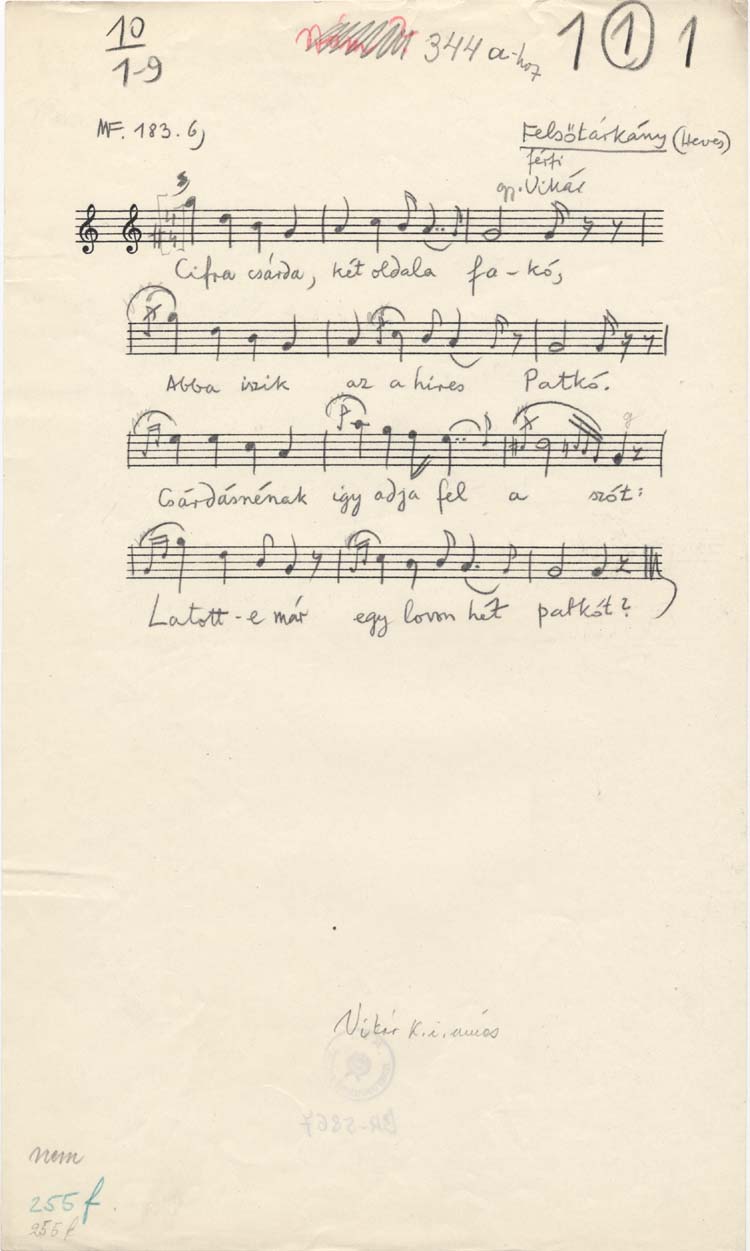 10
1-9
344 a-hoz
1 1 1
MF. 183. 6,
Felsőtárkány (Heves)
férfi
gy. Vikár
Cifra csárda, két oldala fa - kó,
Abba iszik az a híres Patkó.
Csárdásnénak így adja fel a szót:
Látott - e már egy lovon hét patkót?
Vikár
BA-5867
nem
255 f
255 f